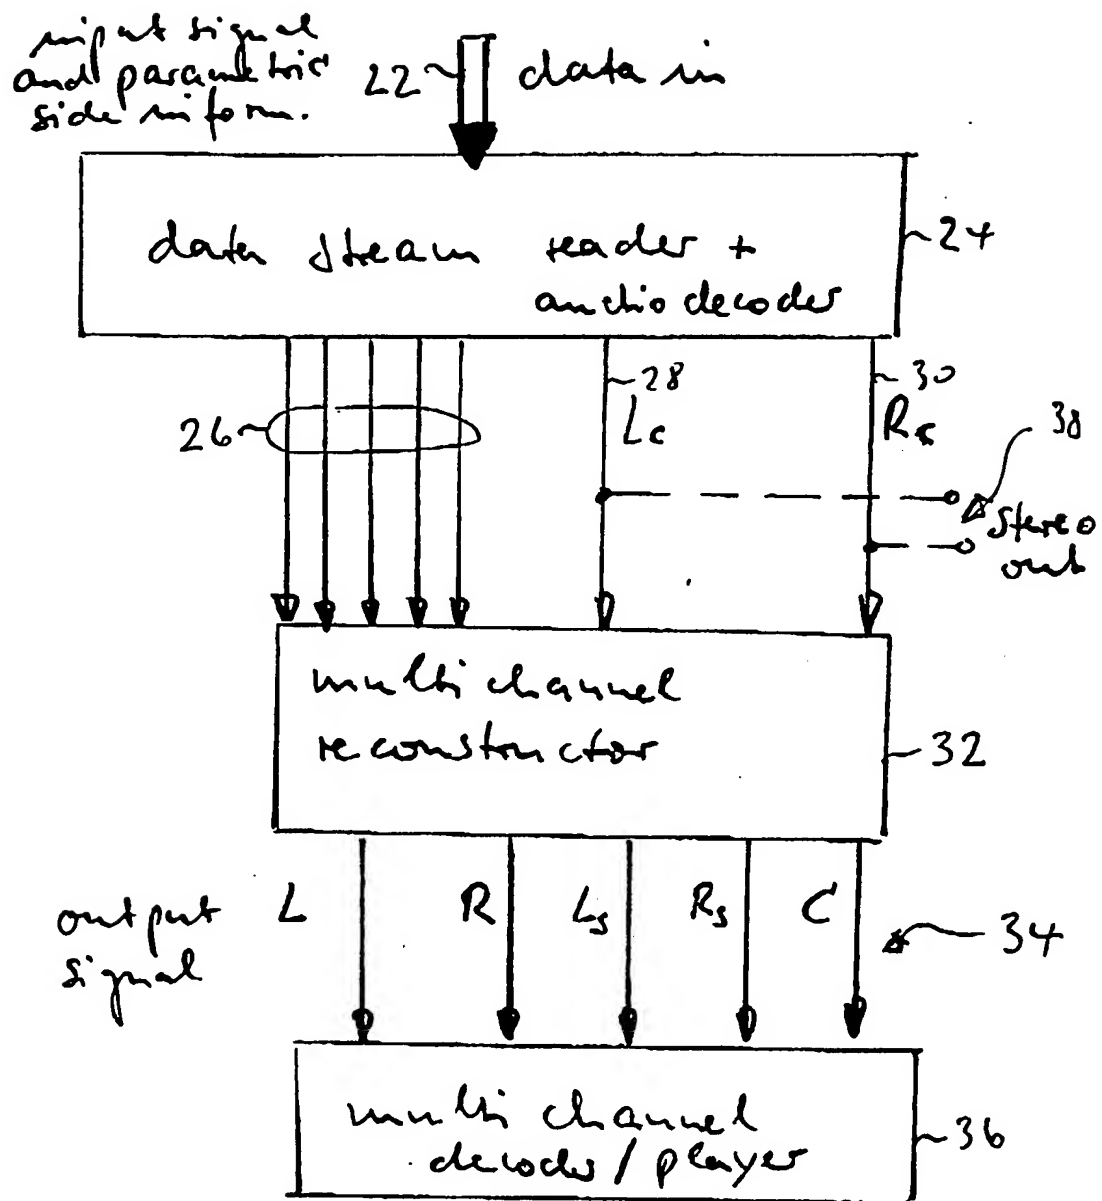 input signal
and parametric
side inform.
22
data in
data stream reader +
audio decoder
24
26
28
Lc
30
Rc
38
stereo
out
multi channel
reconstructor
32
output
signal
L
R
Ls
Rs
C
34
multi channel
decoder / player
36